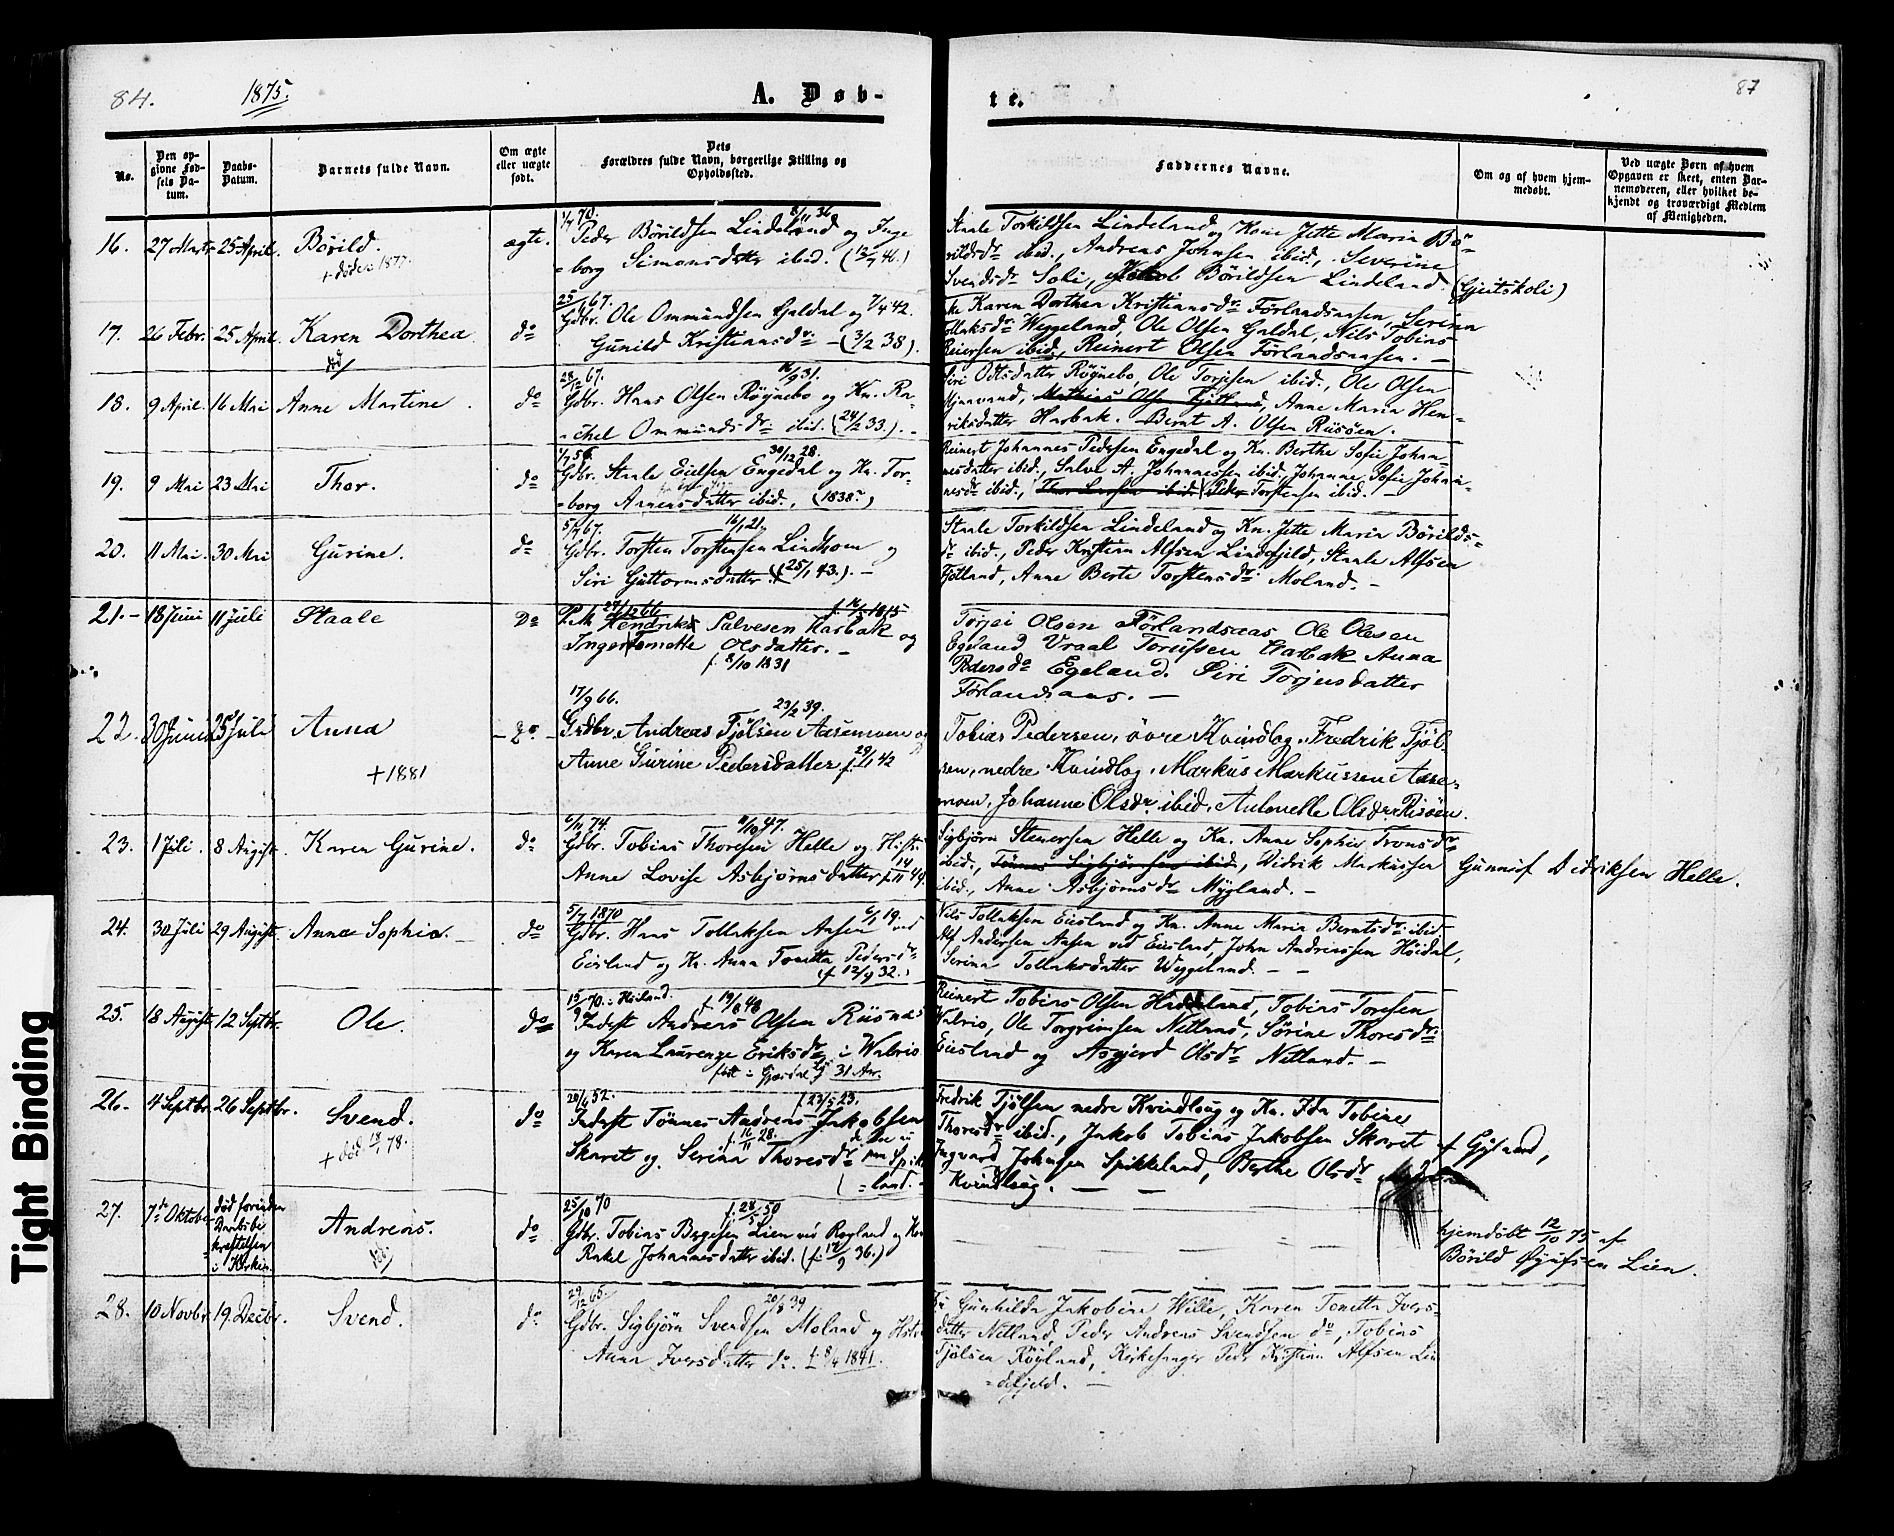 84.
1875.
A. Døb-
te.
87
No.
Den op-
givne Fød-
sels Da-
tum.
Daabs-
Datum.
Barnets fulde Navn.
Om ægte
eller uægte
født.
Dets
Forældres fulde Navn, borgerlige Stilling og
Opholdssted.
Faddernes Navne.
Om og af hvem hjem-
medøbt.
Ved uægte Børn af hvem
Opgaven er skeet, enten Bar-
nemoderen, eller hvilket be-
kjendt og troværdigt Medlem
af Menigheden.
16. 27 Marts 25 April. Børild. ægte.
+ døde 1877.
Peder Børildsen Lindeland og Inge
=borg Simonsdatter ibid.
Staale Torkildsen Lindeland og Kone Jette Maria Bö=
rildsdr ibid., Andreas Johnsen ibid., Severine
Svendsdr Soli, Jakob Börildsen Lindeland (Gjeitskoli)
17. 26 Febr. 25 April. Karen Dorthea do
25/ 67.
Gdbr. Ole Ommundsen Galdal og 7/4 42.
Gunild Kristiansdr. – (3/2 38).
Karen Dorthea Kristiansdr. Förlandsaasen, Serina
Tollaksdr. Weggeland, Ole Olsen Galdal, Nils Tobias
Reiersen ibid, Reinert Olsen Förlandsaasen. –
18. 9 April. 16 Mai Anne Martine. do
28/12 67. 16/9 31.
Gdbr. Hans Olsen Röynebo og Kn. Ra-
=chel Ommundsdr. ibid. (24/2 33.). –
Siri Oddsdatter Röynebo, Ole Torjesen ibid., Ole Olsen
Mathias Olsen Fjotland, Anne Maria Hen-
riksdatter Harbak. Bernt A. Olsen Risöen.
19. 9 Mai 23 Mai Thor. do
30/12 28.
Gdbr. Staale Eielsen Engedal og Kn. Tor-
=borg Aanensdatter ibid., (1838)
Reinert Johannes Pedersen Engedal og Kn. Berthe Sofie Johan-
nesdatter ibid., Salve A. Johannessen ibid, Johanne Sofie Johan-
nesdr ibid., Thor Larsen ibid. Peder Torstensen ibid. –
20. 11 Mai. 30 Mai Gurine. do
5/7 67. 16/ 21.
Gdbr. Torsten Torstensen Lindhom og
Siri Guttormsdatter. (25/1 43.). –
Staale Torkildsen Lindeland og Kn. Jette Maria Börilds-
dr ibid., Peder Kristian Alfsen Lindefjeld, Staale Alfsen
Fjotland, Anne Berte Torstensdr. Moland. –
21. – 18 Juni 11 Juli Staale Do
27/12 66
P.M. Hendrik Salvesen Harbakk og
Inger Tomette Olsdatter. –
f. 8/10 1831
Torjei Olsen Förlandsaas Ole Olesen
Egeland Vraal Torufsen Harbak Anna
Pedersdr Egeland. Siri Torjusdatter
Förlandsaas. –
22. 30 Juni 25 Juli Anna – do –
+ 1881
17/9 66. 23/2 39.
Grdbr. Andreas Fjölsen Aasemoen og
Anne Gurine Pedersdatter f. 29/1 42
Tobias Pedersen, övre Kvindlog. Fredrik Fjöl-
sen, nedre Kvindlog. Markus Markussen Aase-
moen. Johanne Olsdr ibid. Antonelle Olsdr Risöen.
23. 1 Juli. 8 August. Karen Gurine. do
6/ 74. 11/10 47.
Gdbr. Tobias Thoresen Helle og Hustru
Anne Lovise Asbjörnsdatter f. 14/11 49.
Sigbjörn Stenersen Helle og Kn. Anne Sophie Tronsdr
ibid., Tönnes Sigbjörnsen ibid, Didrik Markussen
ibid., Anne Asbjörnsdr Mygland. –
Gunnuf Didriksen Helle.
24. 30 Juli 29 August. Anna Sophia. – do
5/7 1870 6/1 19.
Gdbr. Hans Tollaksen Aasen ved
Eiesland og Kn. Anna Tonetta Pedersdr
(f. 12/9 32.)
Nils Tollaksen Eiesland og Kn. Anne Maria Berntsdr. ibid.
Alf Andersen Aasen ved Eiesland, John Andreassen Höidal,
Serina Tollaksdatter Weggeland. – –
25. 18 August 12 Septbr. Ole. do
15/9 70. i Höiland. f. 19/8 48
Inderst Andreas Olsen Risnes
og Karen Laurenze Eriksdr i Walrio
født i Gjæsdal 31 Aar.
Reinert Tobias Olsen Haddeland, Tobias Toresen
Walrio, Ole Torgrimsen Netland, Sörine Thoresdr.
Eiesland og Asgjerd Olsdr Netland. –
26. 4 Septbr. 26 Septbr. Svend. do
+ död 18/1 78.
20/6 52. f. 23/5 23.
Inderst Tönnes Andreas Jakobsen
Skaret og Serina Thoresdr f. 16/11 28.
Fredrik Fjölsen nedre Kvindlaug og Kn. Ida Tobine
Thoresdr ibid., Jakob Tobias Jakobsen Skaret
Ingvard Johnsen Spikkeland, Berthe Olsdr
Kvindlaug. – –
27. 7de Oktober Andreas. do
død forinden
Daabsbe-
kræftelsen
i Kirken.
25/10 70 f. 28/5 50
Gdbr. Tobias Børgesen Lien ved Royland og Kn.
Rakel Johannesdatter ibid. (f. 14/9 36.)
hjemdöbt 12/10 75 af
Börild Öyufsen Lien.
28. 10 Novbr. 19. Decbr. Svend. do
29/12 65. 20/8 39
Gdbr. Sigbjörn Svendsen Moland og Hstr.
Anna Iversdatter do. f. 8/4 1841.
Gunhilda Jakobine Wille, Karen Tonetta Ivers-
datter Netland, Peder Andreas Svendsen do, Tobias
Fjölsen Röyland, Kirkesanger Peder Kristian Alfsen Lin-
=defjeld. –
Tight Binding